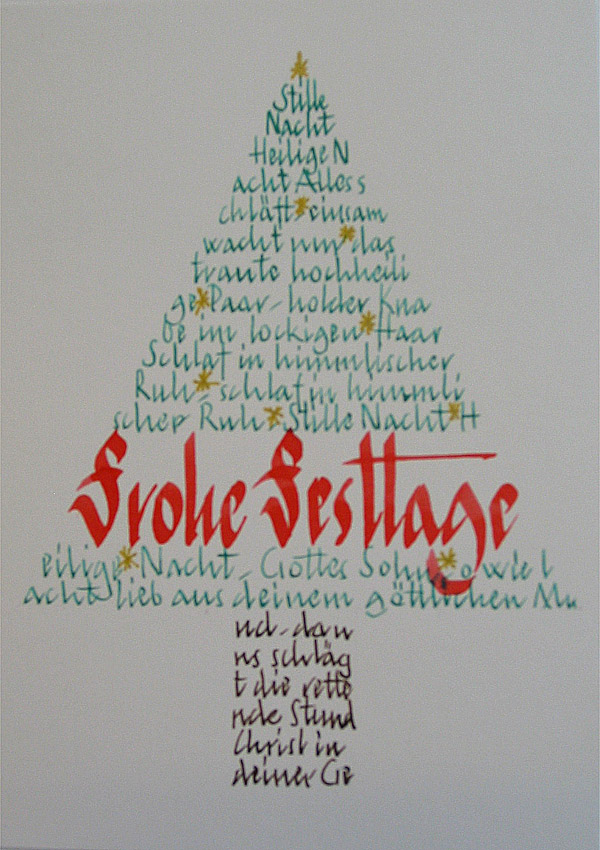 Stille
Nacht
Heilige N
acht Alles s
chläft einsam
wacht nur das
traute hochheili
ge Paar - holder Kna
be im lockigen Haar
Schlaf in himmlischer
Ruh - schlaf in himmli
scher Ruh Stille Nacht H
Frohe Festtage
eilige Nacht - Gottes Sohn o wie l
acht lieb aus deinem göttlichen Mu
nd - da u
ns schläg
t die rette
nde Stund
Christ in
deiner Ge